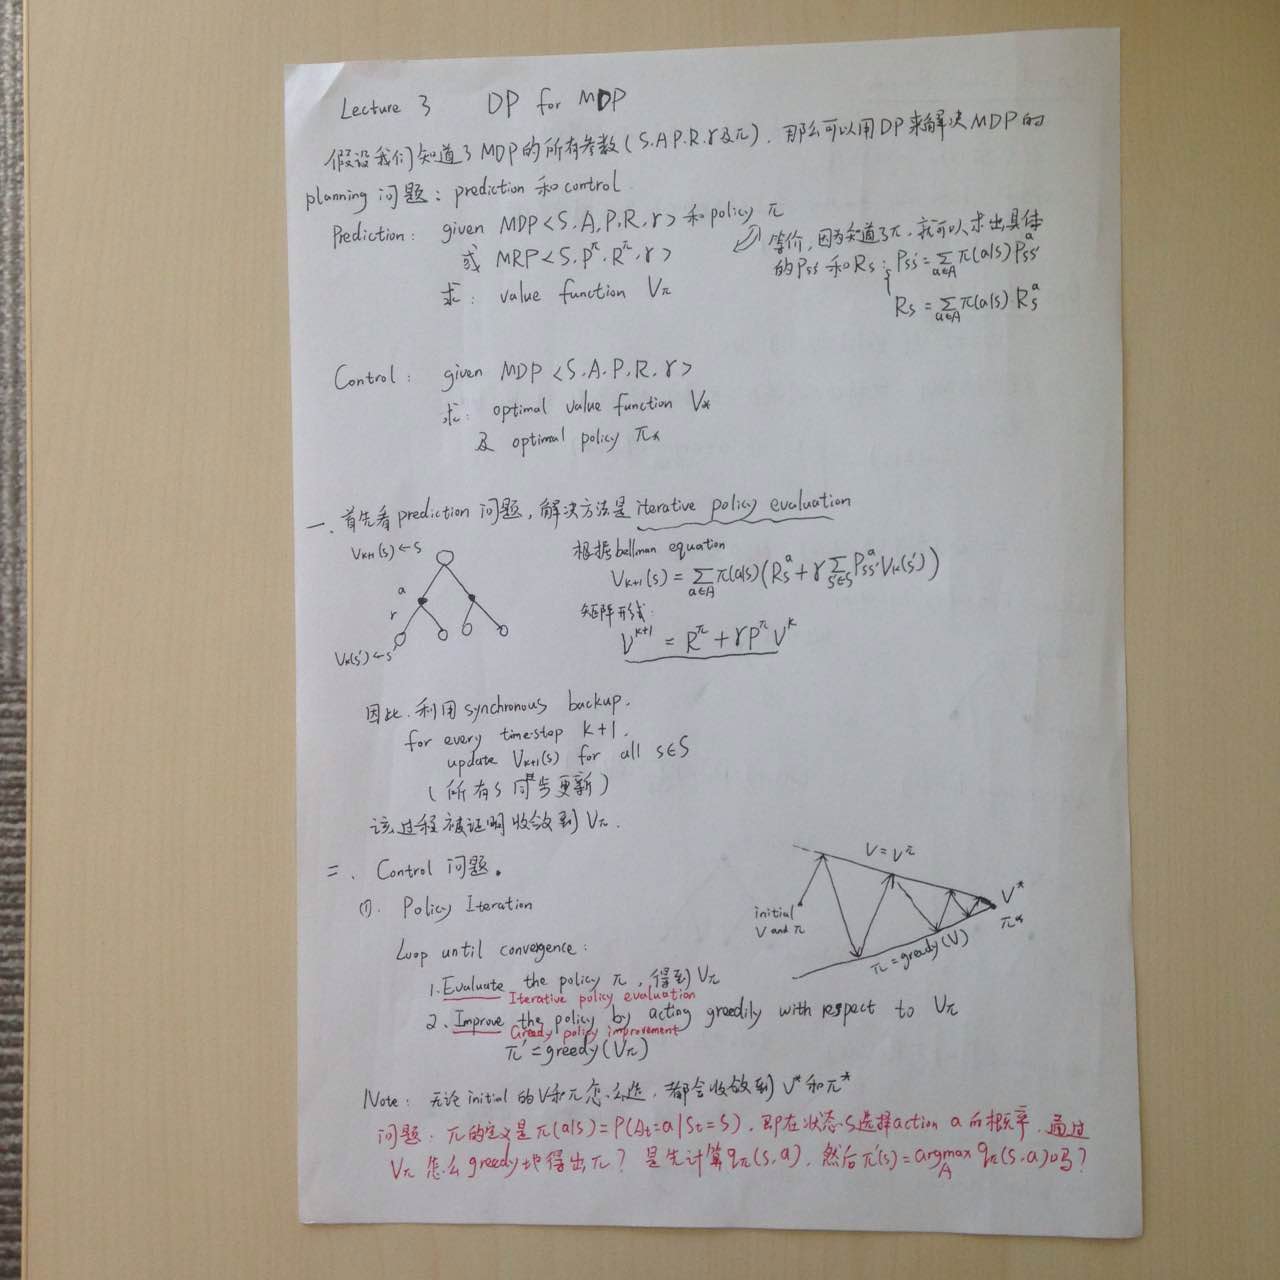 Lecture 3 DP for MDP
假设我们知道了MDP的所有参数(S.A.P.R.γ及π)，那么可以用DP来解决MDP的
planning问题：prediction和control
Prediction: given MDP<S,A,P,R,γ>和policy π
或 MRP<S,P^π,R^π,γ>
求: value function Vπ
等价，因为知道了π，我可以求出具体
的Pss'和Rs: Pss' = Σ_{a∈A} π(a|s)P^a_{ss'}
Rs = Σ_{a∈A} π(a|s)·R^a_s
Control: given MDP<S.A.P.R.γ>
求: optimal value function V*
及 optimal policy π*
一、首先看prediction问题，解决方法是iterative policy evaluation
V_{k+1}(s)←s
a
r
V_k(s')←s'
根据bellman equation
V_{k+1}(s) = Σ_{a∈A} π(a|s)(R^a_s + γ Σ_{s'∈S} P^a_{ss'} V_k(s'))
矩阵形式:
V^{k+1} = R^π + γP^π V^k
因此.利用synchronous backup.
for every time-step k+1.
update V_{k+1}(s) for all s∈S
(所有s同步更新)
该过程被证明收敛到Vπ.
二、Control问题。
①. Policy Iteration
Loop until convergence:
1.Evaluate the policy π，得到Vπ
Iterative policy evaluation
2.Improve the policy by acting greedily with respect to Vπ
Greedy policy improvement
π'=greedy(Vπ)
V=V^π
initial
V and π
π=greedy(V)
V*
π*
Note: 无论initial的V和π怎么选，都会收敛到V*和π*
问题：π的定义是π(a|s)=P(At=a|St=s)，即在状态S选择action a的概率，通过
Vπ怎么greedy地得出π？是先计算qπ(s,a)，然后π'(s)=argmax_A qπ(s,a)吗？